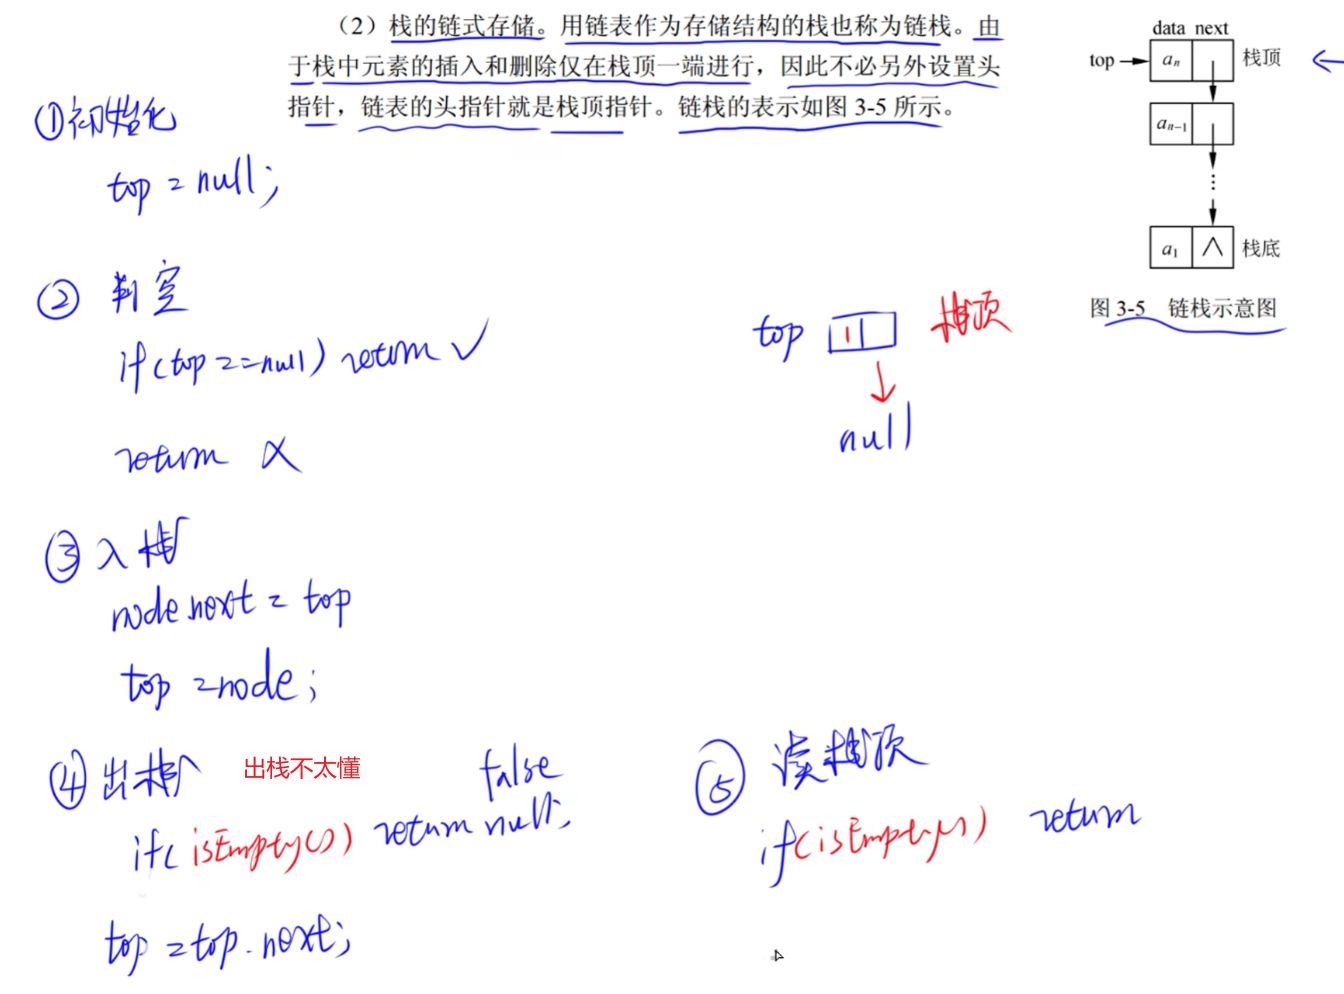 （2）栈的链式存储。用链表作为存储结构的栈也称为链栈。由
于栈中元素的插入和删除仅在栈顶一端进行，因此不必另外设置头
指针，链表的头指针就是栈顶指针。链栈的表示如图 3-5 所示。
data next
top
aₙ
栈顶
aₙ₋₁
⋮
a₁ ∧
栈底
图 3-5 链栈示意图
①初始化
top = null;
② 判空
if(top == null) return ✓
return ✗
top
1
栈顶
null
③ 入栈
node.next = top
top = node;
④ 出栈
出栈不太懂
false
if( isEmpty() ) return null;
top = top.next;
⑤ 读栈顶
if(isEmpty()) return